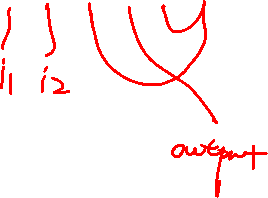 i1 i2
output